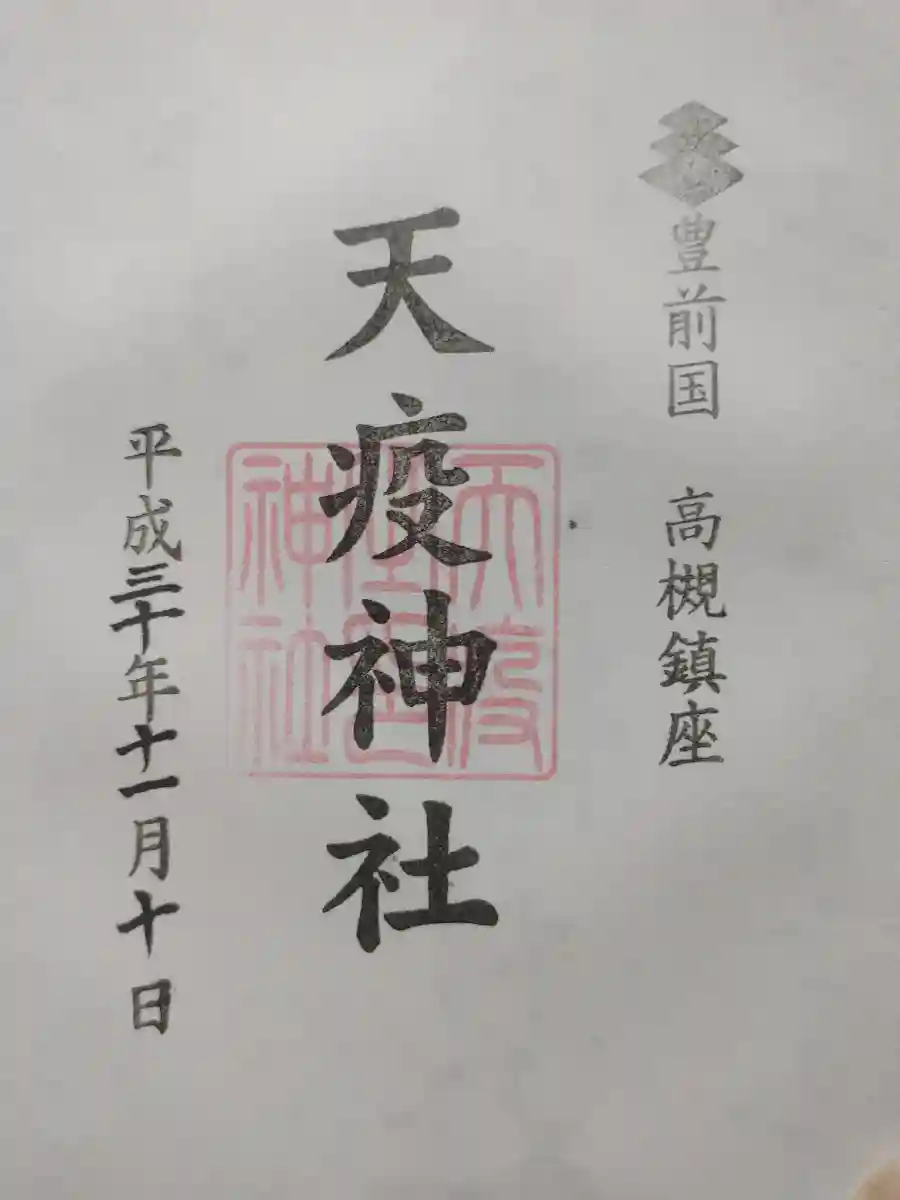 豊前国　高槻鎮座
天疫神社
平成三十年十一月十日